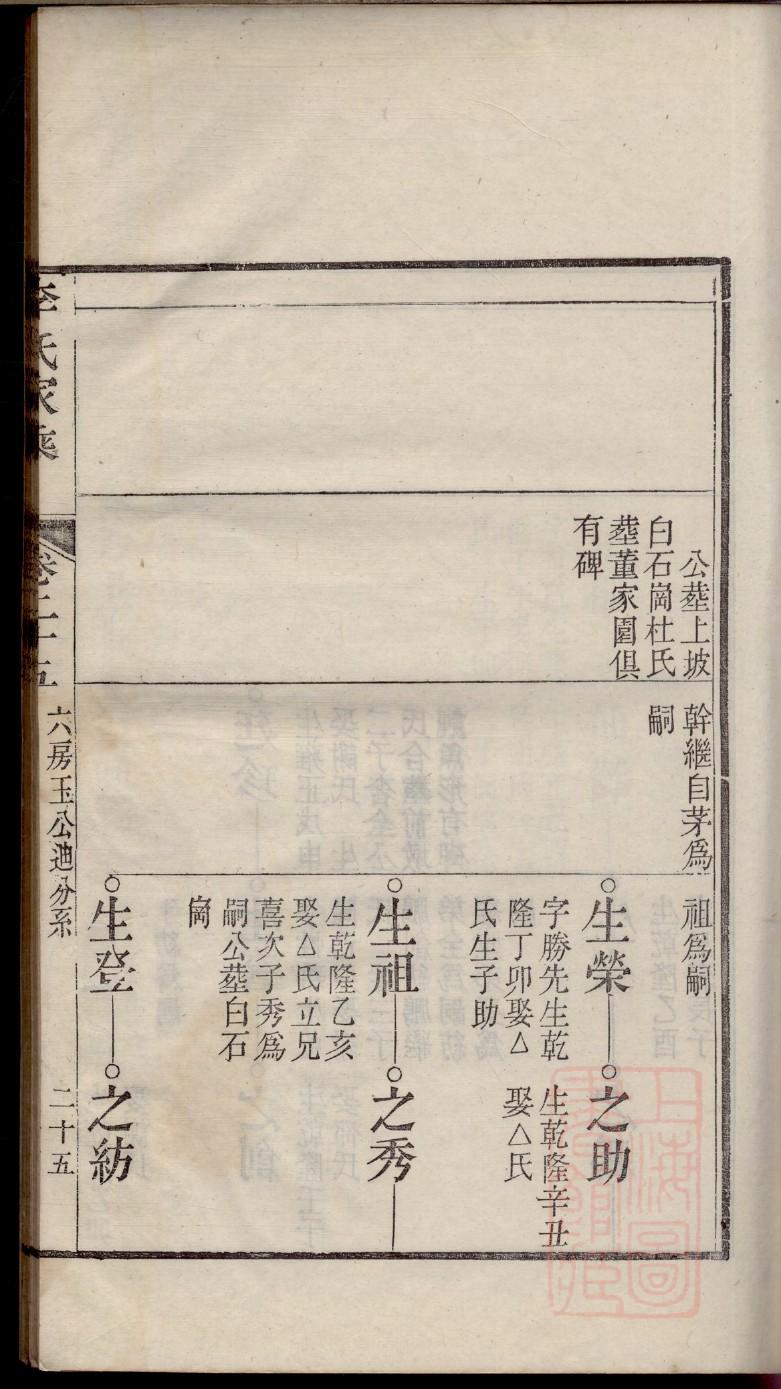 公塟上坡
白石崗杜氏
塟董家園俱
有碑
幹繼自茅爲
嗣
祖爲嗣
生榮
字勝先生乾
隆丁卯娶△
氏生子助
之助
生乾隆辛丑
娶△氏
生祖
生乾隆乙亥
娶△氏立兄
喜次子秀爲
嗣公塟白石
崗
之秀
生登
之紡
李氏家乘
卷二十五
六房玉公迪分系
二十五
上海圖